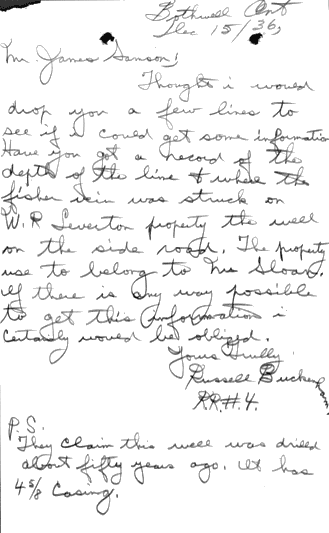 Bothwell Ont
Dec 15/36,
Mr. James Samson!
Thought i would
drop you a few lines to
see if i could get some information
Have you got a record of the
depth of the line & where the
fisher vein was struck on
W. R Leverton property the well
on the side road. The property
use to belong to Mr Sloan.
If there is any way possible
to get this information i
certainly would be obliged.
Yours Truly
Russell
RR.#.4.
P.S.
They claim this well was drilled
about fifty years ago. It has
4 5/8 Casing.